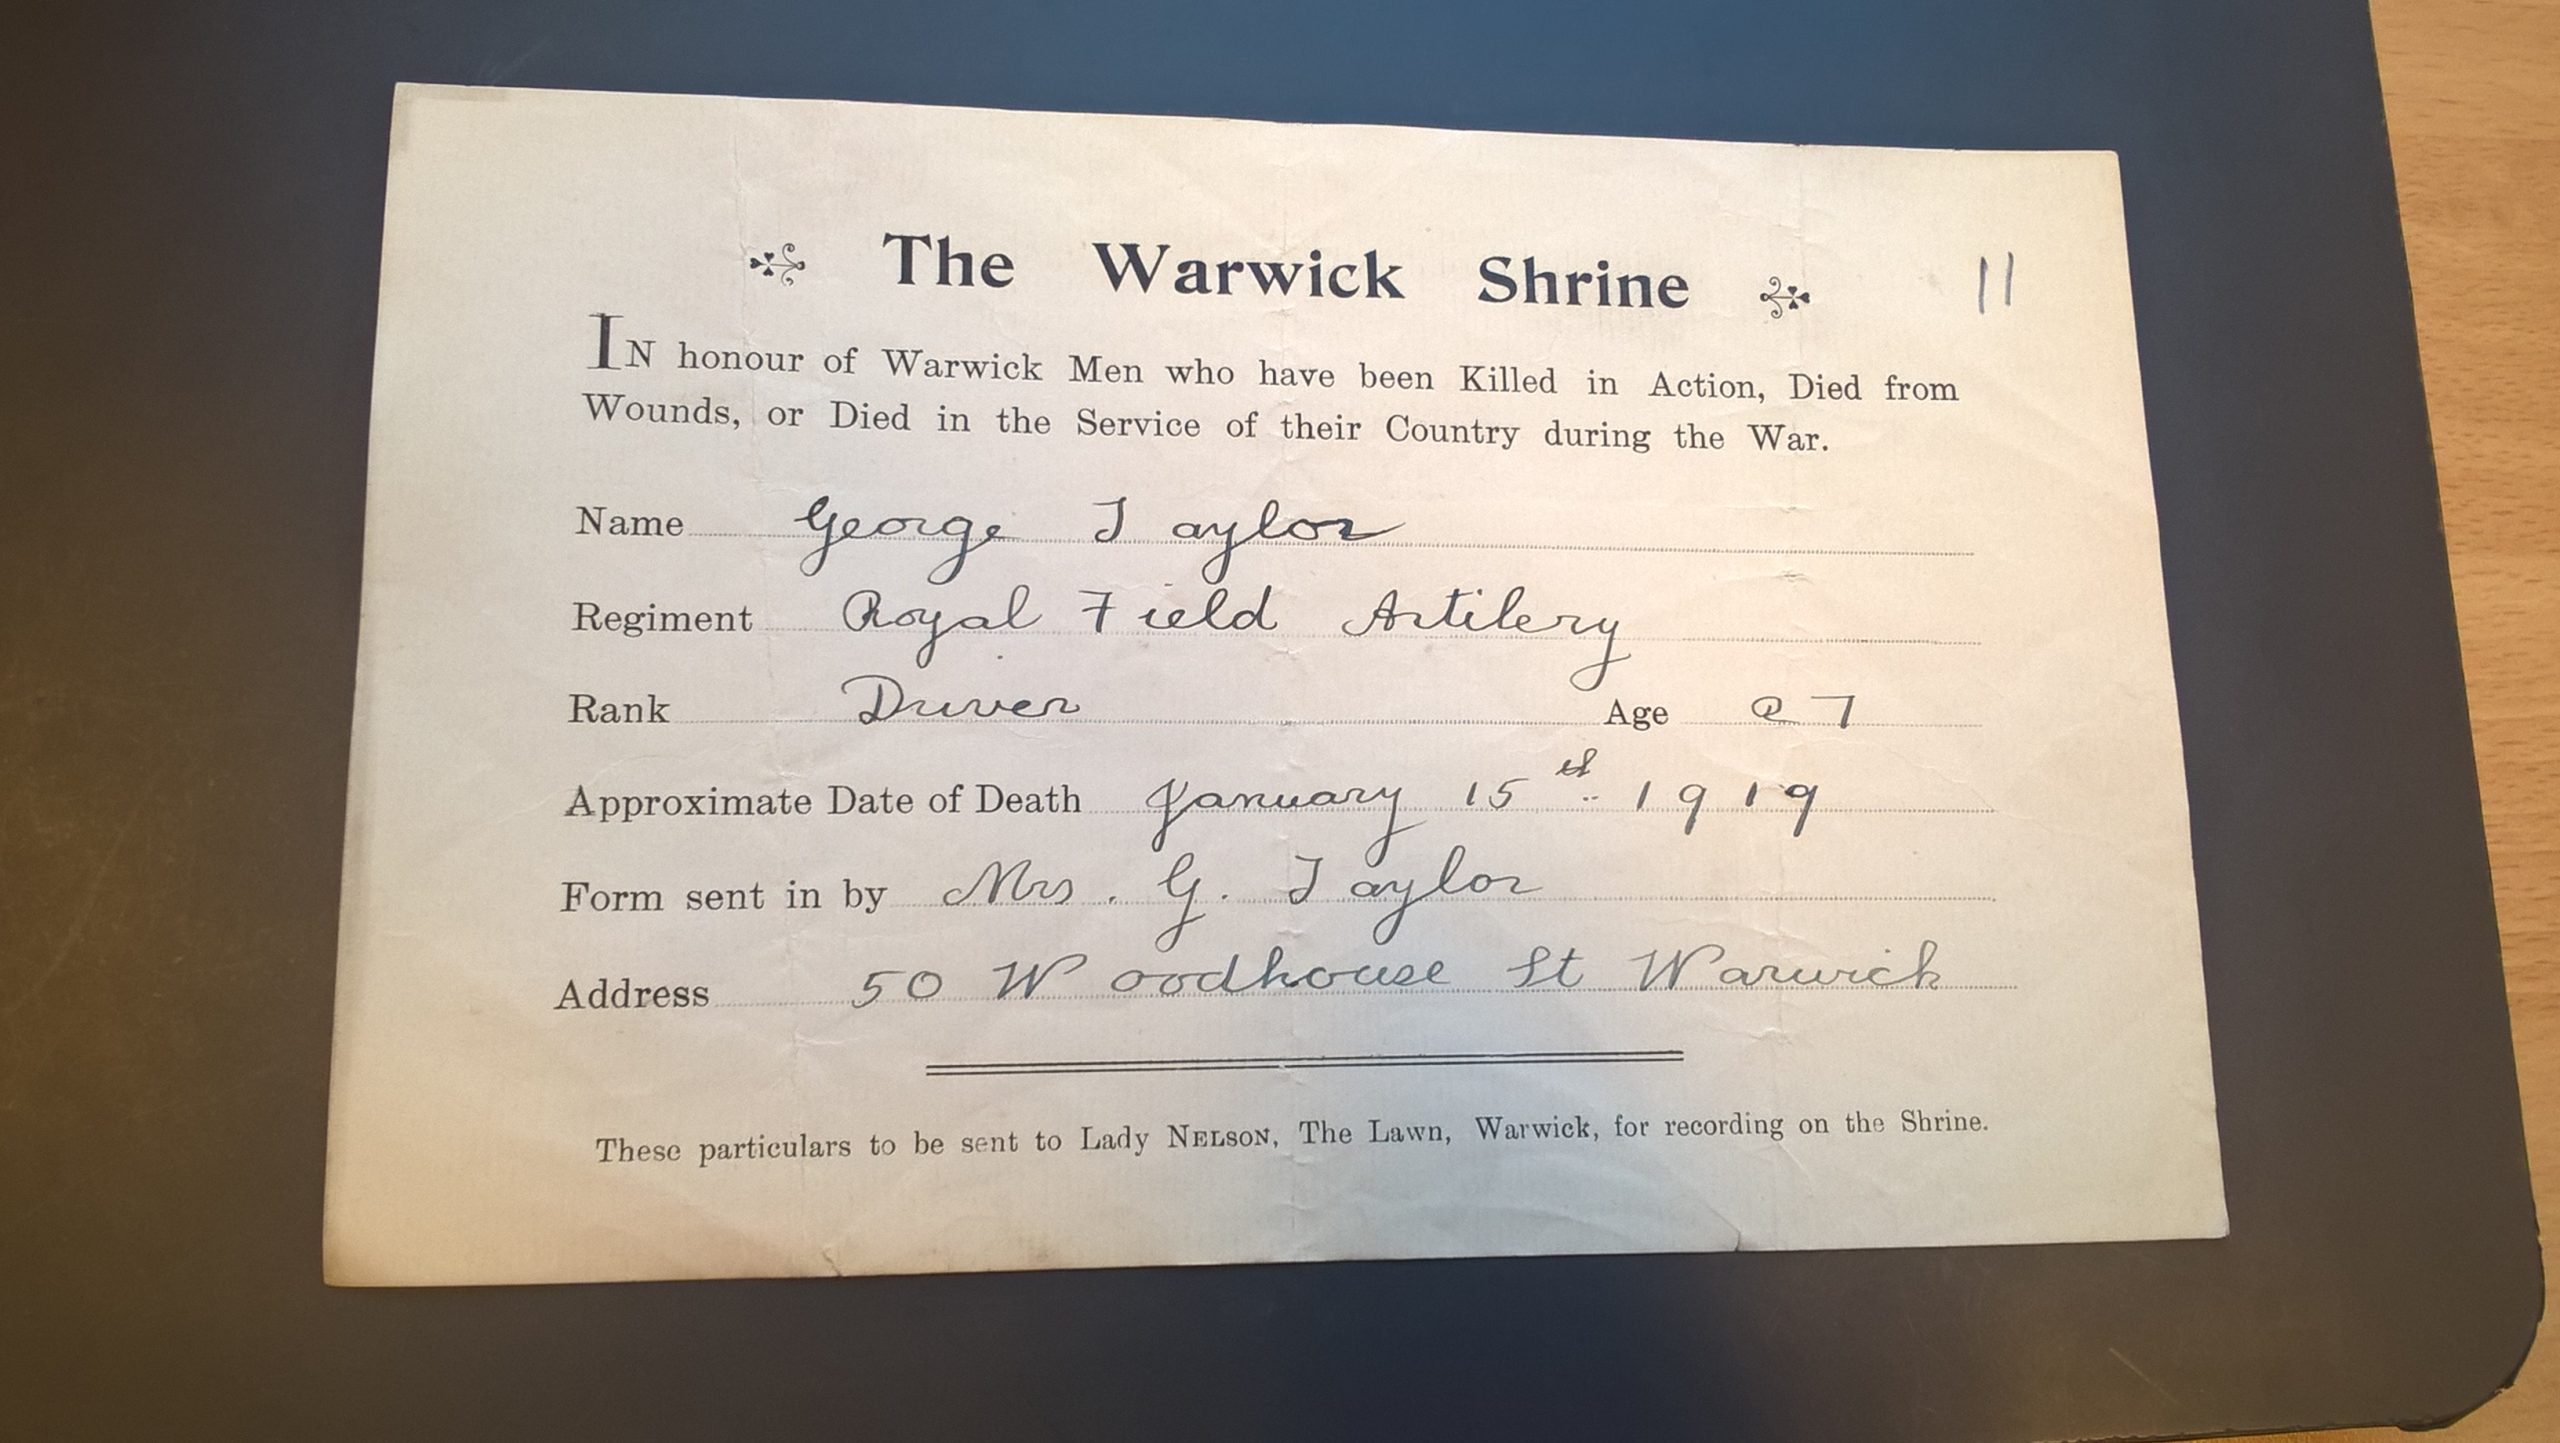 The Warwick Shrine 11
IN honour of Warwick Men who have been Killed in Action, Died from
Wounds, or Died in the Service of their Country during the War.
Name George Taylor
Regiment Royal Field Artilery
Rank Driver Age 27
Approximate Date of Death January 15th 1919
Form sent in by Mrs. G. Taylor
Address 50 Woodhouse St Warwick
These particulars to be sent to Lady NELSON, The Lawn, Warwick, for recording on the Shrine.